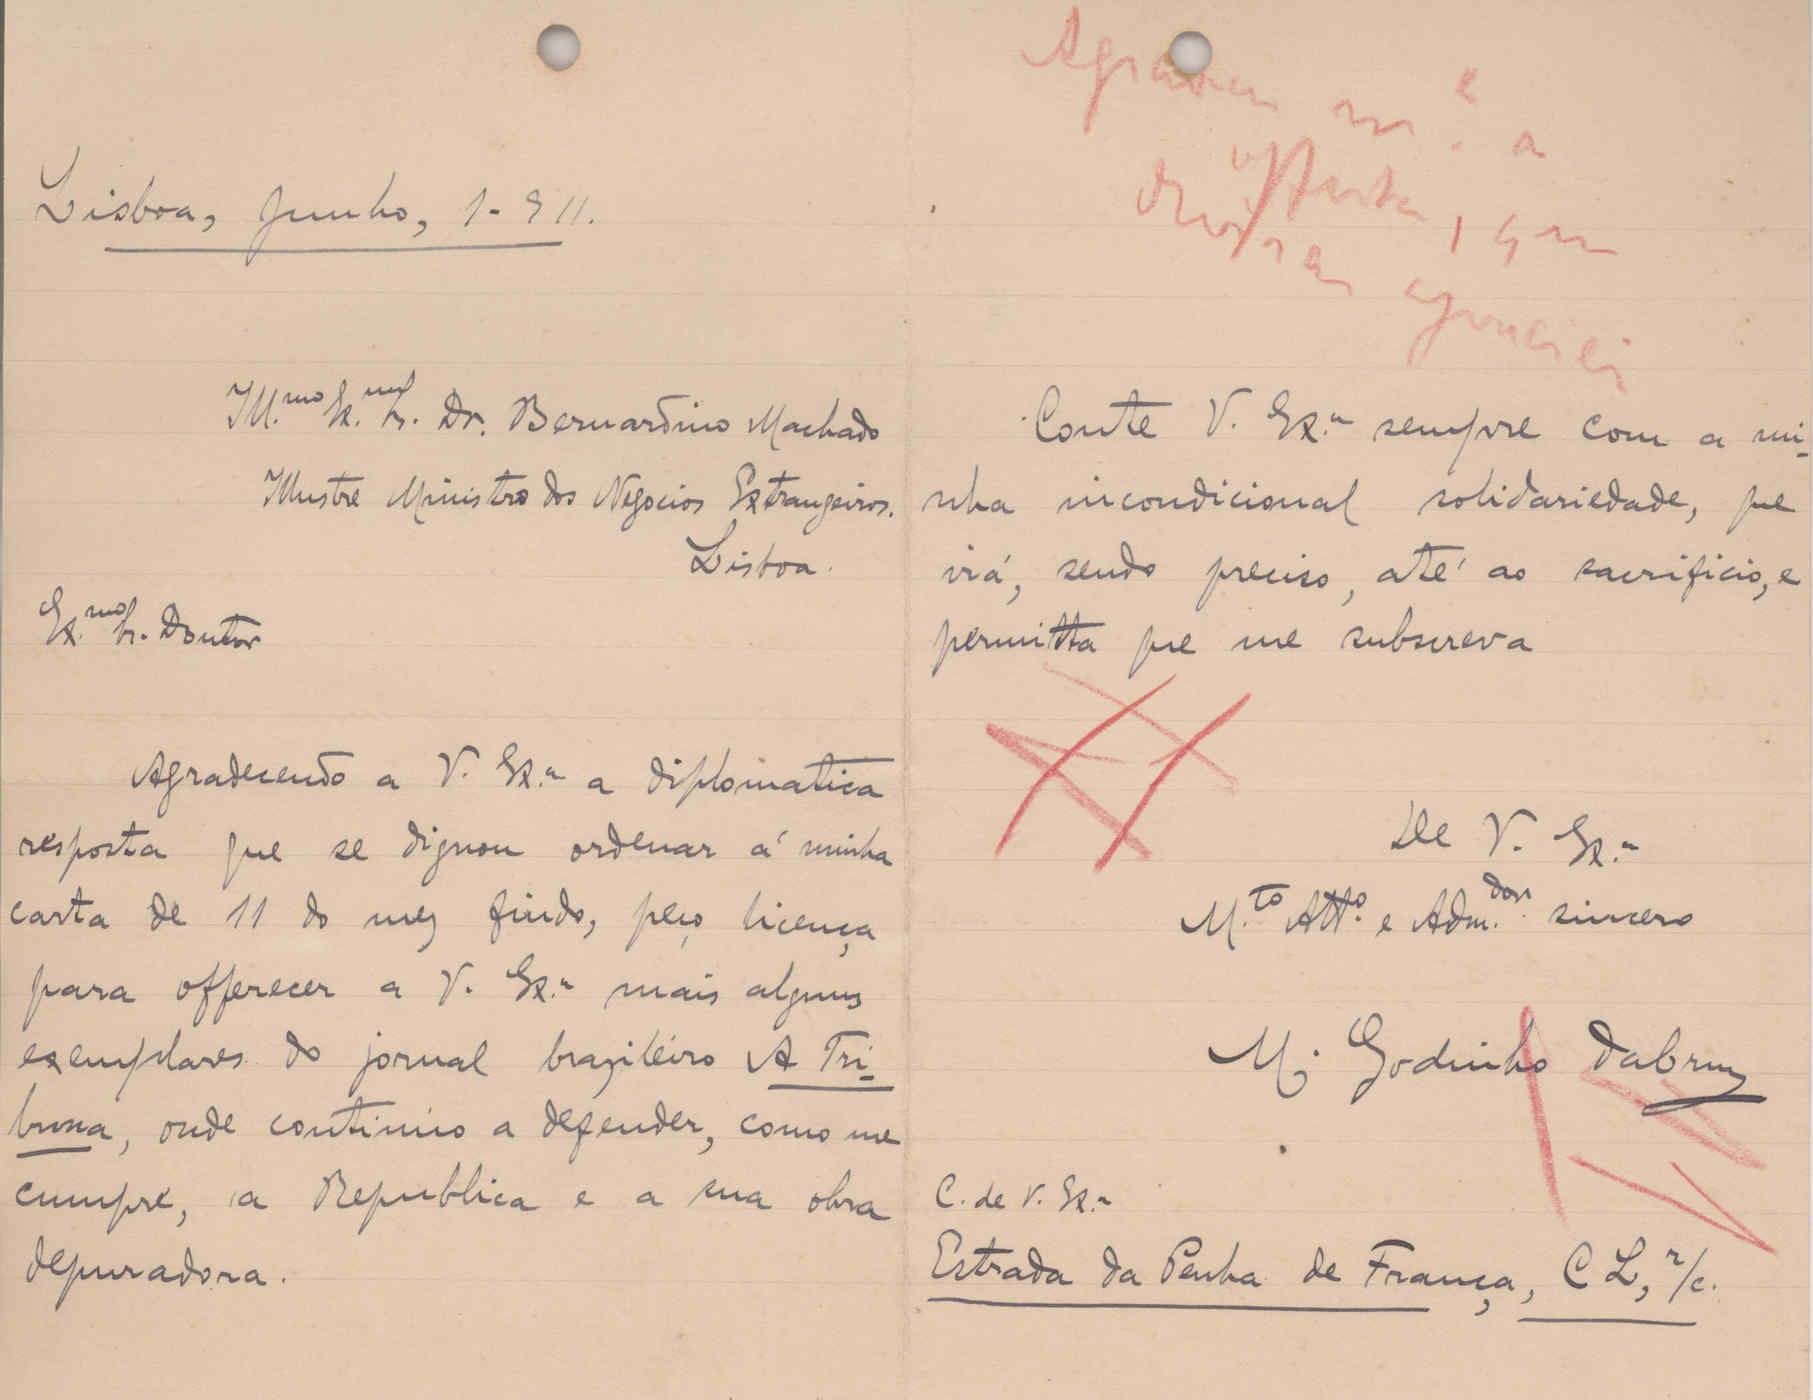 Lisboa, Junho, 1-911.
Ill.mo Ex.mo Sr. Dr. Bernardino Machado
Illustre Ministro dos Negocios Extrangeiros.
Lisboa.
Ex.mo Sr. Doutor
Agradecendo a V. Ex.a a diplomatica
resposta que se dignou ordenar á minha
carta de 11 do mez findo, peço licença
para offerecer a V. Ex.a mais alguns
exemplares do jornal brazileiro A Tri-
buna, onde continúo a defender, como me
cumpre, a Republica e a sua obra
depuradora.
Agradecer m.to a
offerta
Conte V. Ex.a sempre com a mi-
nha incondicional solidariedade, que
irá, sendo preciso, até ao sacrificio, e
permitta que me subscreva
De V. Ex.a
M.to Att.o e Adm.dor sincero
M. Godinho da Cruz
C. de V. Ex.a
Estrada da Penha de França, C L, r/c.